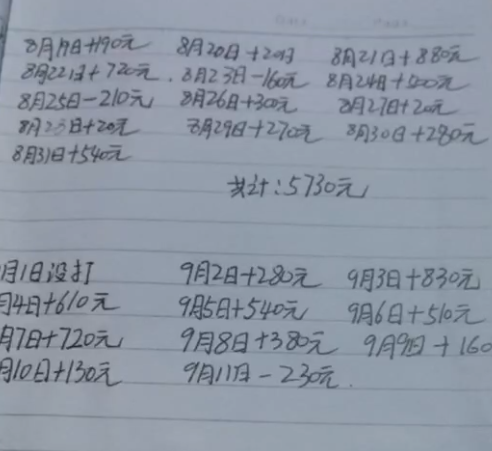 8月19日+190元 8月20日+20元 8月21日+880元
8月22日+720元 8月23日-160元 8月24日+400元
8月25日-210元 8月26日+300元 8月27日+20元
8月28日+20元 8月29日+270元 8月30日+280元
8月31日+540元
共计:5730元
月1日没打 9月2日+280元 9月3日+830元
月4日+610元 9月5日+540元 9月6日+510元
月7日+720元 9月8日+380元 9月9日+160
月10日+130元 9月11日-230元